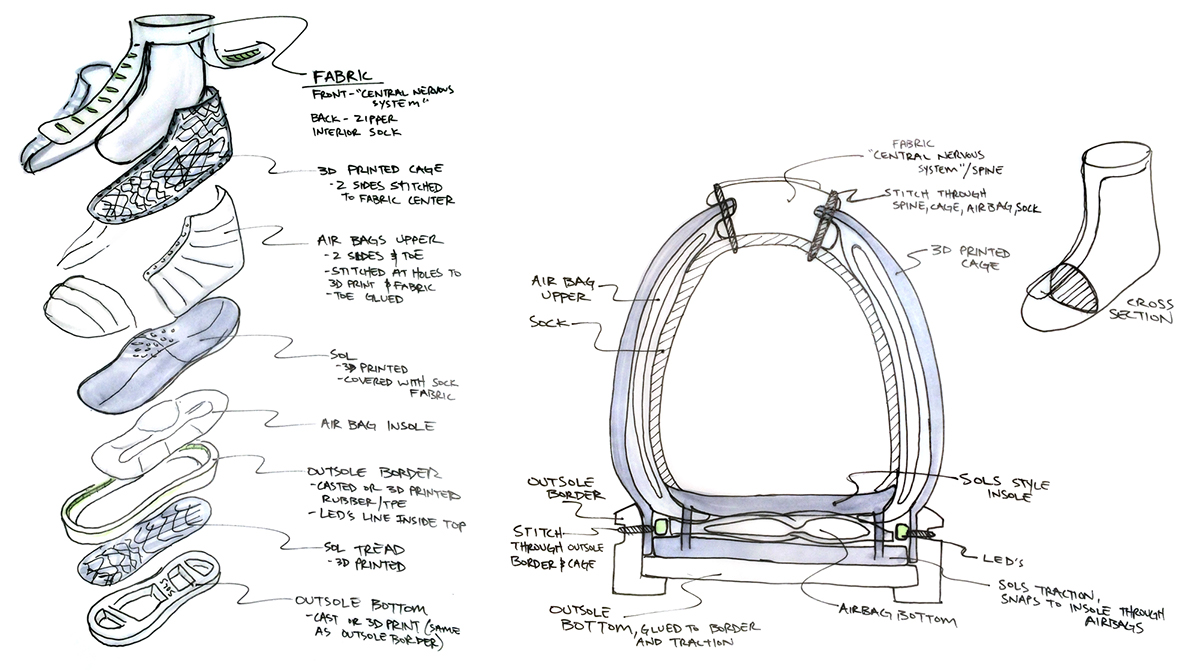 FABRIC
FRONT-"CENTRAL NERVOUS
SYSTEM"
BACK - ZIPPER
INTERIOR SOCK
3D PRINTED CAGE
- 2 SIDES STITCHED
TO FABRIC CENTER
AIR BAGS UPPER
- 2 SIDES & TOE
- STITCHED AT HOLES TO
3D PRINT & FABRIC
- TOE GLUED
SOL
- 3D PRINTED
- COVERED WITH SOCK
FABRIC
AIR BAG INSOLE
OUTSOLE BORDER
- CASTED OR 3D PRINTED
RUBBER/TPE
- LED'S LINE INSIDE TOP
SOL TREAD
- 3D PRINTED
OUTSOLE BOTTOM
- CAST OR 3D PRINT (SAME
AS OUTSOLE BORDER)
SOLS
FABRIC
"CENTRAL NERVOUS
SYSTEM"/SPINE
STITCH THROUGH
SPINE, CAGE, AIRBAG, SOCK
3D PRINTED
CAGE
AIR BAG
UPPER
SOCK
CROSS
SECTION
OUTSOLE
BORDER
STITCH
THROUGH OUTSOLE
BORDER & CAGE
SOLS STYLE
INSOLE
LED'S
SOLS TRACTION,
SNAPS TO INSOLE THROUGH
AIRBAGS
AIRBAG BOTTOM
OUTSOLE
BOTTOM, GLUED TO BORDER
AND TRACTION